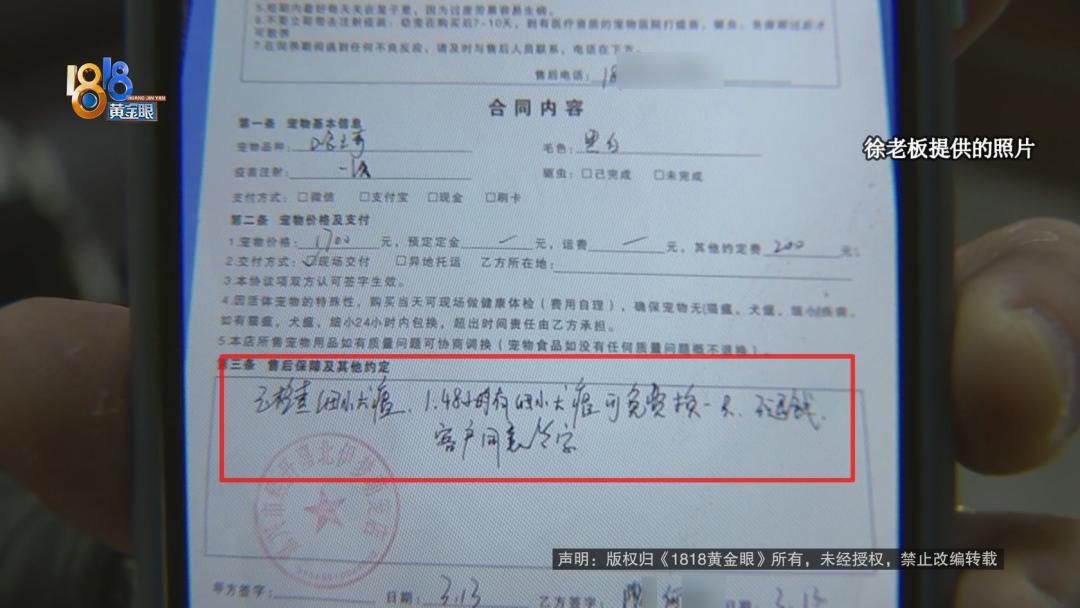 5.短期内最好每天关在笼子里，因为过度劳累容易生病。
7.在饲养期间遇到任何不良反应，请及时与售后人员联系，电话在下方。
售后电话：18
1818
HUANG JIN YAN
黄金眼
合同内容
徐老板提供的照片
第一条 宠物基本信息
宠物品种： 毛色：黑白
疫苗注射： 驱虫：□已完成 □未完成
支付方式：□微信 □支付宝 □现金 □刷卡
第二条 宠物价格及支付
1.宠物价格：1700元，预定定金 — 元，运费 — 元，其他约定费 200 元。
2.交付方式：□现场交付 □异地托运 乙方所在地：
3.本协议项双方认可签字生效。
4.因活体宠物的特殊性，购买当天可现场做健康体检（费用自理），确保宠物无(猫瘟，犬瘟，细小)疾病。
如有猫瘟，犬瘟，细小24小时内包换，超出时间责任由乙方承担。
5.本店所售宠物用品如有质量问题可协商调换（宠物食品如没有任何质量问题概不退换）。
第三条 售后保障及其他约定
已检查细小犬瘟、1.48小时有细小犬瘟可免费换一只、不退钱、
客户同意签字
声明：版权归《1818黄金眼》所有，未经授权，禁止改编转载
甲方签字： 日期：3.13 乙方签字： 日期：3.13